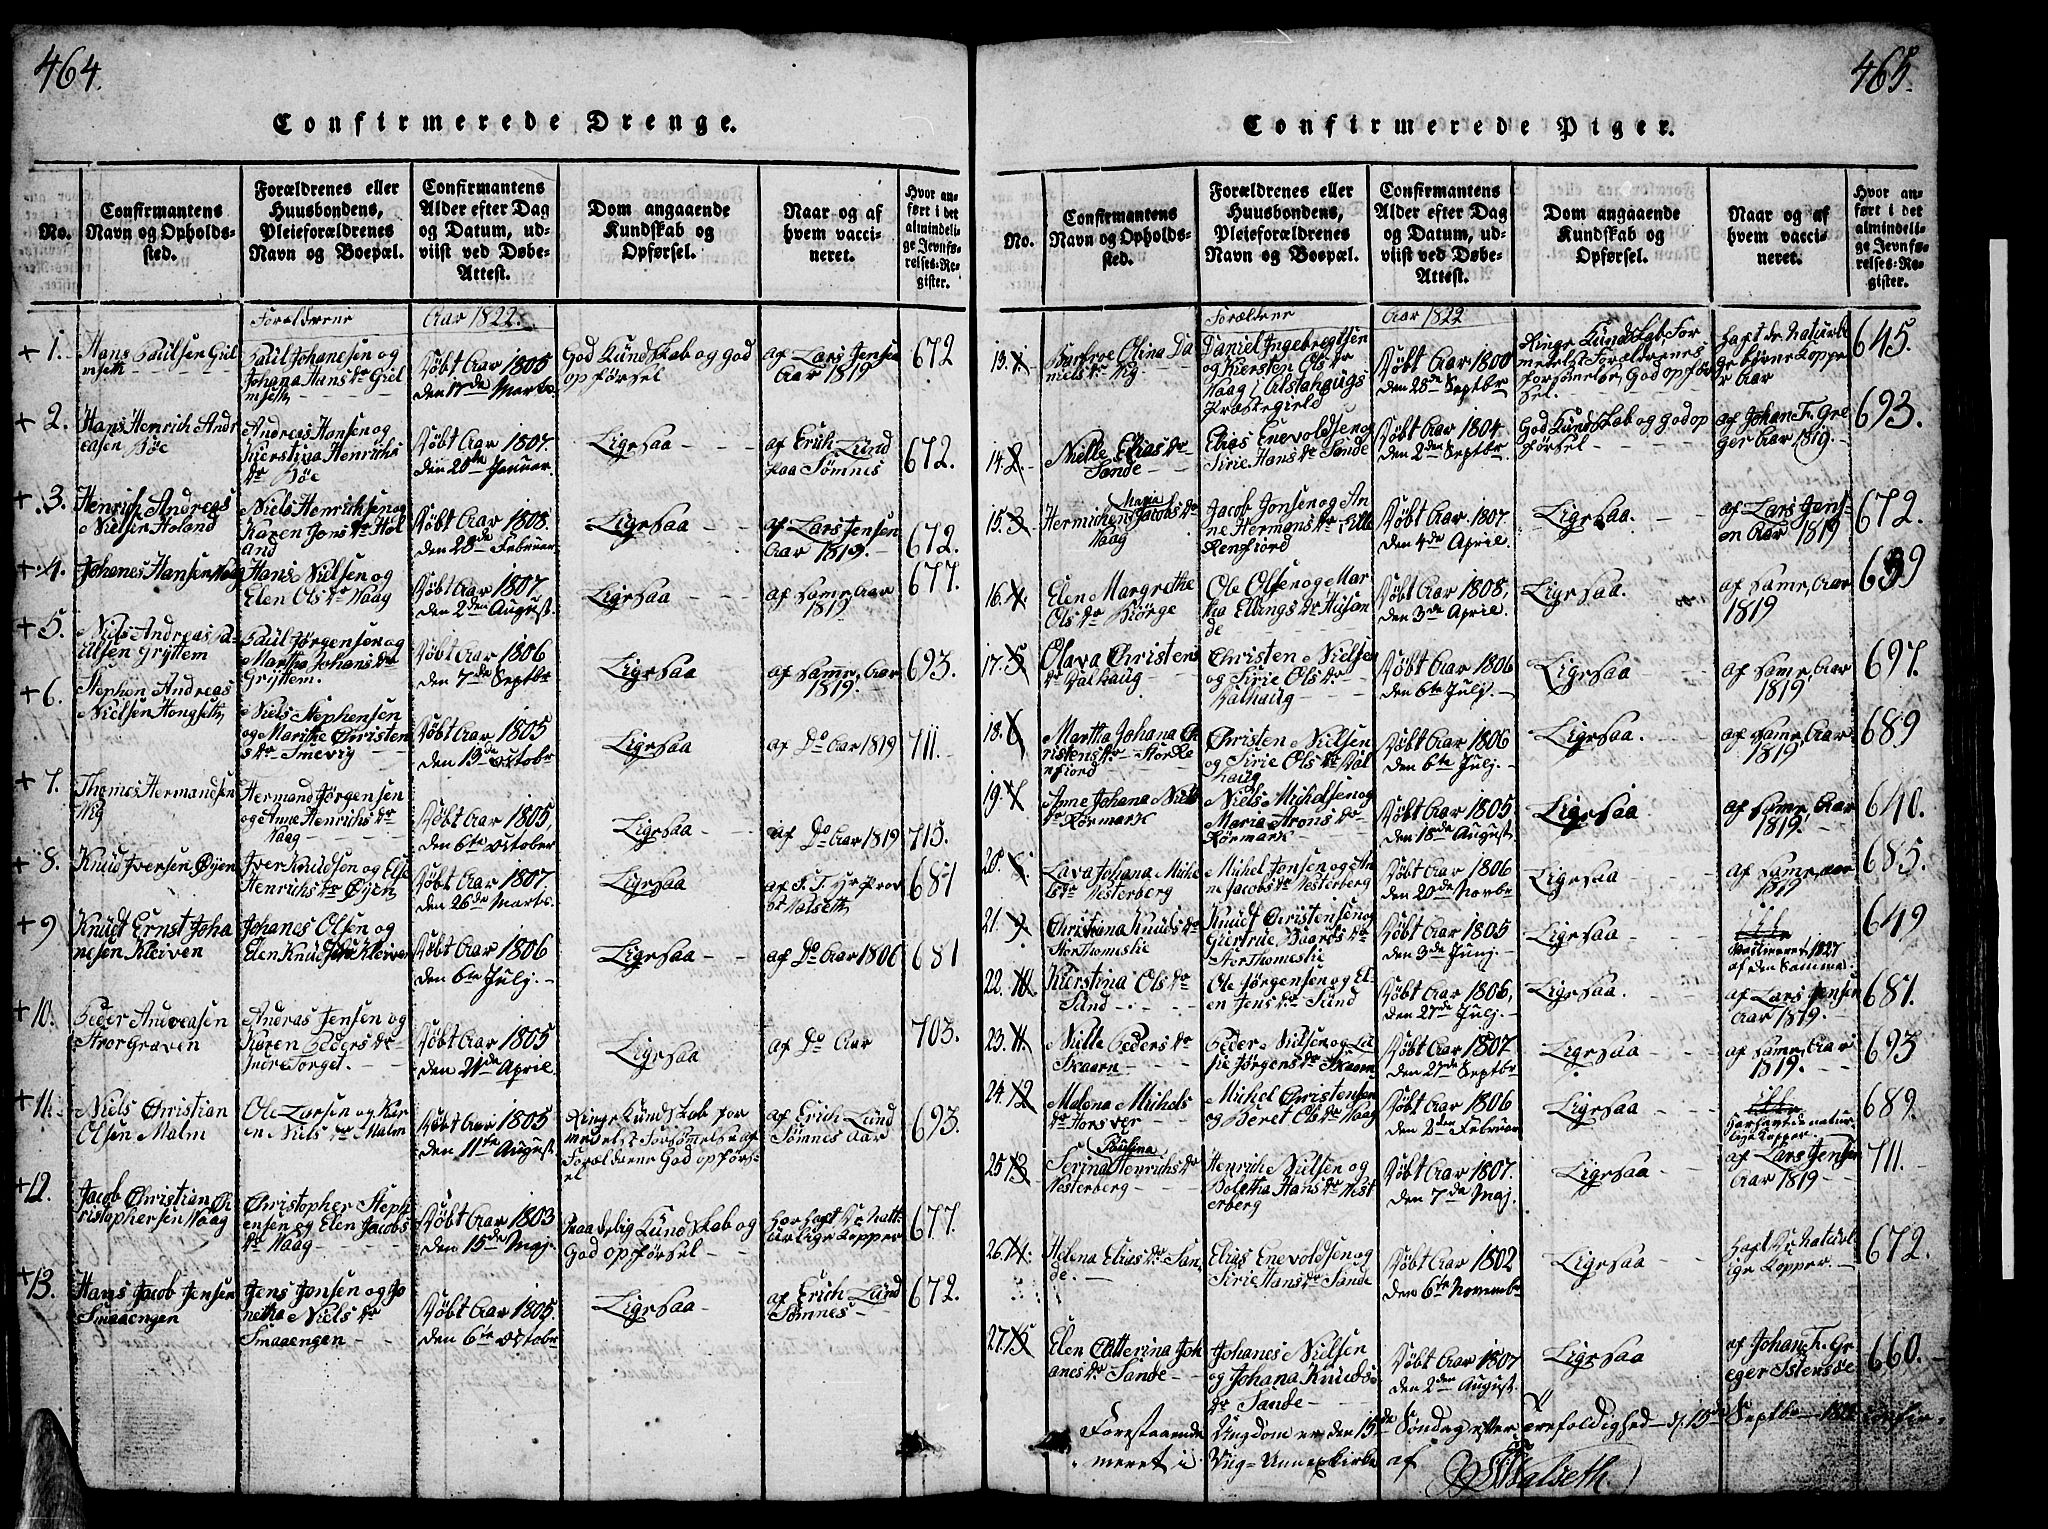 464.
Confirmerede Drenge.
No.
Confirmantens
Navn og Opholds-
sted.
Forældrenes eller
Huusbondens,
Pleieforældrenes
Navn og Boepæl.
Confirmantens
Alder efter Dag
og Datum, ud-
viist ved Døbe-
Attest.
Dom angaaende
Kundskab og
Opførsel.
Naar og af
hvem vacci-
neret.
Hvor an-
ført i det
almindeli-
ge Jevnfø-
relses-Re-
gister.
Forælderne
Aar 1822.
+ 1.
Hans Paulsen
Paul Johanesen og
Johana Hans dr
Døbt Aar 1805
den 17de Marts
God Kundskab og god
opførsel
af Lars Jensen
Aar 1819
672
+ 2.
Hans Henrich Andr
easen Bøe
Andreas Hansen og
Kierstina Henrichs
dr Bøe
Døbt Aar 1807.
den 20de Januar
Ligesaa
af Erich Lund
paa Sömnes
672.
+ 3.
Henrich Andreas
Nielsen Holand
Niels Henrichsen og
Karen Jons dr Hol
and
Døbt Aar 1808.
den 28de Februar
Ligesaa
af Lars Jensen
Aar 1819.
672.
+ 4.
Johanes Hansen Haag
Hans Nielsen og
Elen Ols dr Haag
Døbt Aar 1807
den 2den August
Ligesaa
af Same, Aar
1819
677.
+ 5.
Niels Andreas Pa-
ulsen Gryttem
Paul Jørgensen og
Martha Johans dr
Gryttem.
Døbt Aar 1806
den 7de Septbr
Ligesaa
af Same, Aar
1819.
693.
+ 6.
Stephen Andreas
Nielsen Hongseth
Niels Stephensen
og Marithe Christen
s dr Smevig
Døbt Aar 1805
den 13de Octobr
Ligesaa
af Do Aar 1819
711.
+ 7.
Thomes Hermandsen
Wig
Hermand Jørgensen
og Anne Henrichs dr
Haag
Døbt Aar 1805,
den 6te October
Ligesaa
af Do Aar 1819
715.
+ 8.
Knud Iversen Øyen
Iver Knudson og Else
Henrichs dr Øyen
Døbt Aar 1807.
den 26de Marts.
Ligesaa
681
+ 9
Knudt Ernst Joha
nesen Kleiven
Johanes Olsen og
Elen Knuds dr Kleiven
Døbt Aar 1806
den 6te Julj.
Ligesaa
af Do Aar 1806
681
+10.
Peder Andreasen
Storgraven
Andras Jensen og
Karen Peders dr
Indre Torget.
Døbt Aar 1805
den 21de April
Ligesaa
af Do Aar
703.
+11.
Niels Christian
Olsen Malm
Ole Larsen og Kar
en Niels dr Malm
Døbt Aar 1805
den 11te August
Ringe Kundskab for
medelst Forsömelse af
Forælderne God opførs-
el
af Erich Lund
Sömnes Aar
693.
+12.
Jacob Christian Ch
ristophersen Haag
Christopher Steph
ensen og Elen Jacobs
dr Haag
Døbt Aar 1803
den 15de Maj.
Maadelig Kundskab og
God opførsel
har haft de natt-
urlige Kopper
677.
+13.
Hans Jacob Jensen
Smaaengen
Jens Jonsen og Jo
netha Niels dr
Smaaengen
Døbt Aar 1805.
den 6te Octobr
Ligesaa
af Erich Lund
Sömnes
672.
465.
Confirmerede Piger.
No.
Confirmantens
Navn og Opholds-
sted.
Forældrenes eller
Huusbondens,
Pleieforældrenes
Navn og Boepæl.
Confirmantens
Alder efter Dag
og Datum, ud-
viist ved Døbe-
Attest.
Dom angaaende
Kundskab og
Opførsel.
Naar og af
hvem vacci-
neret.
Hvor an-
ført i det
almindeli-
ge Jevnfø-
relses-Re-
gister.
Forældrene
Aar 1822
13. 1.
Olina Da
niels dr Wig
Daniel Ingebregtsen
og Kiersten Ols dr
Haag i Alstahaugs
Præstegield
Døbt Aar 1800
den 28de Septbr
Ringe Kundskab, For
medelst Forældrenes
forsømelse, God opfør
sel.
haft de Naturli
ge børne Koppe
r Aar
645.
14. 2.
Nille Elias dr
Sande
Elias Enevoldsen og
Sirie Hans dr Sande
Døbt Aar 1804
den 2den Septbr
God Kundskab og god op
førsel
af Johan F. Gre
ger Aar 1819.
693.
15. 3
Maria
Jacobs dr
Haag
Jacob Jonsen og An
ne Hermans dr
Døbt Aar 1807.
den 4de April.
Ligesaa.
af Lars Jens-
en Aar 1819
672.
16. 4
Elen Margrethe
Ols dr Børge
Ole Olsen og Mar
tha Ellings dr
Døbt Aar 1808,
den 3de April.
Ligesaa.
af Same, Aar
1819
17. 5
Olava Christens
dr Valhaug
Christen Nielsen
og Sirie Ols dr
Valhaug
Døbt Aar 1806
den 6te Julj.
Ligesaa
af Same, Aar
1819
697.
18. 6
Martha Johana Ch
ristens dr
Christen Nielsen
og Sirie Ols dr Val
haug
Døbt Aar 1806
den 6te Julj.
Ligesaa.
af Same, Aar
1819
689
19. 7
Anne Johana Niels
dr Rørmark
Niels Michelsen og
Maria Arons dr
Rørmark
Døbt Aar 1805
den 18de August
Ligesaa
af Same, Aar
1819.
640.
20. 8
Lava Johana Miche
ls dr Vesterberg
Michel Jonsen og An
ne Jacobs dr Vesterberg
Døbt Aar 1806
den 20de Novbr
Ligesaa
af Same, Aar
1819
685.
21. 9
Christiana Knuds dr
Stor Thomeslie
Knudt Christensen og
Giertrue Baars dr
Stor Thomeslie
Døbt Aar 1805
den 3de Junj.
Ligesaa
af den Samme.
649
22. 10
Kierstina Ols dr
Sund
Ole Jørgensen og El
en Jens dr Sund
Døbt Aar 1806,
den 27de Julj.
Ligesaa.
af Lars Jensen
Aar 1819.
681.
23. 11.
Nille Peders dr
Skaarn
Peder Nielsen og
Jørgens dr Skaarn
Døbt Aar 1807
den 27de Septbr
Ligesaa
af Same, Aar
1819.
693
24. 12
Malena Michels
dr Horsver
Michel Christensen
og Beret Ols dr Haag
Døbt Aar 1806
den 2den Februar
Ligesaa
har havt de natur
lige Kopper.
689.
25 13
Paulina
Serina Henrichs dr
Vesterberg
Henrich Nielsen og
Boletha Hans dr Vest
erberg
Døbt Aar 1807.
den 7de Maj.
Ligesaa
af Lars Jensen
Aar 1819
711.
26. 14.
Helena Elias dr San
de.
Elias Enevoldsen og
Sirie Hans dr Sande
Døbt Aar 1802
den 6te Novembr
Ligesaa
haft de naturl-
ige Kopper.
672.
27. 15
Elen Catterina Joh
anes dr Sande
Johanes Nielsen
og Johana Knuds
dr Sande
Døbt Aar 1807
den 2den August.
Ligesaa
af Johan F. Gr
eger
660.
Forestaaende Ungdom er den 15de Søndag efter Trefoldighed d. 15de Septbr 1822 confir-
meret i Viig-Annexkirke af
Walseth